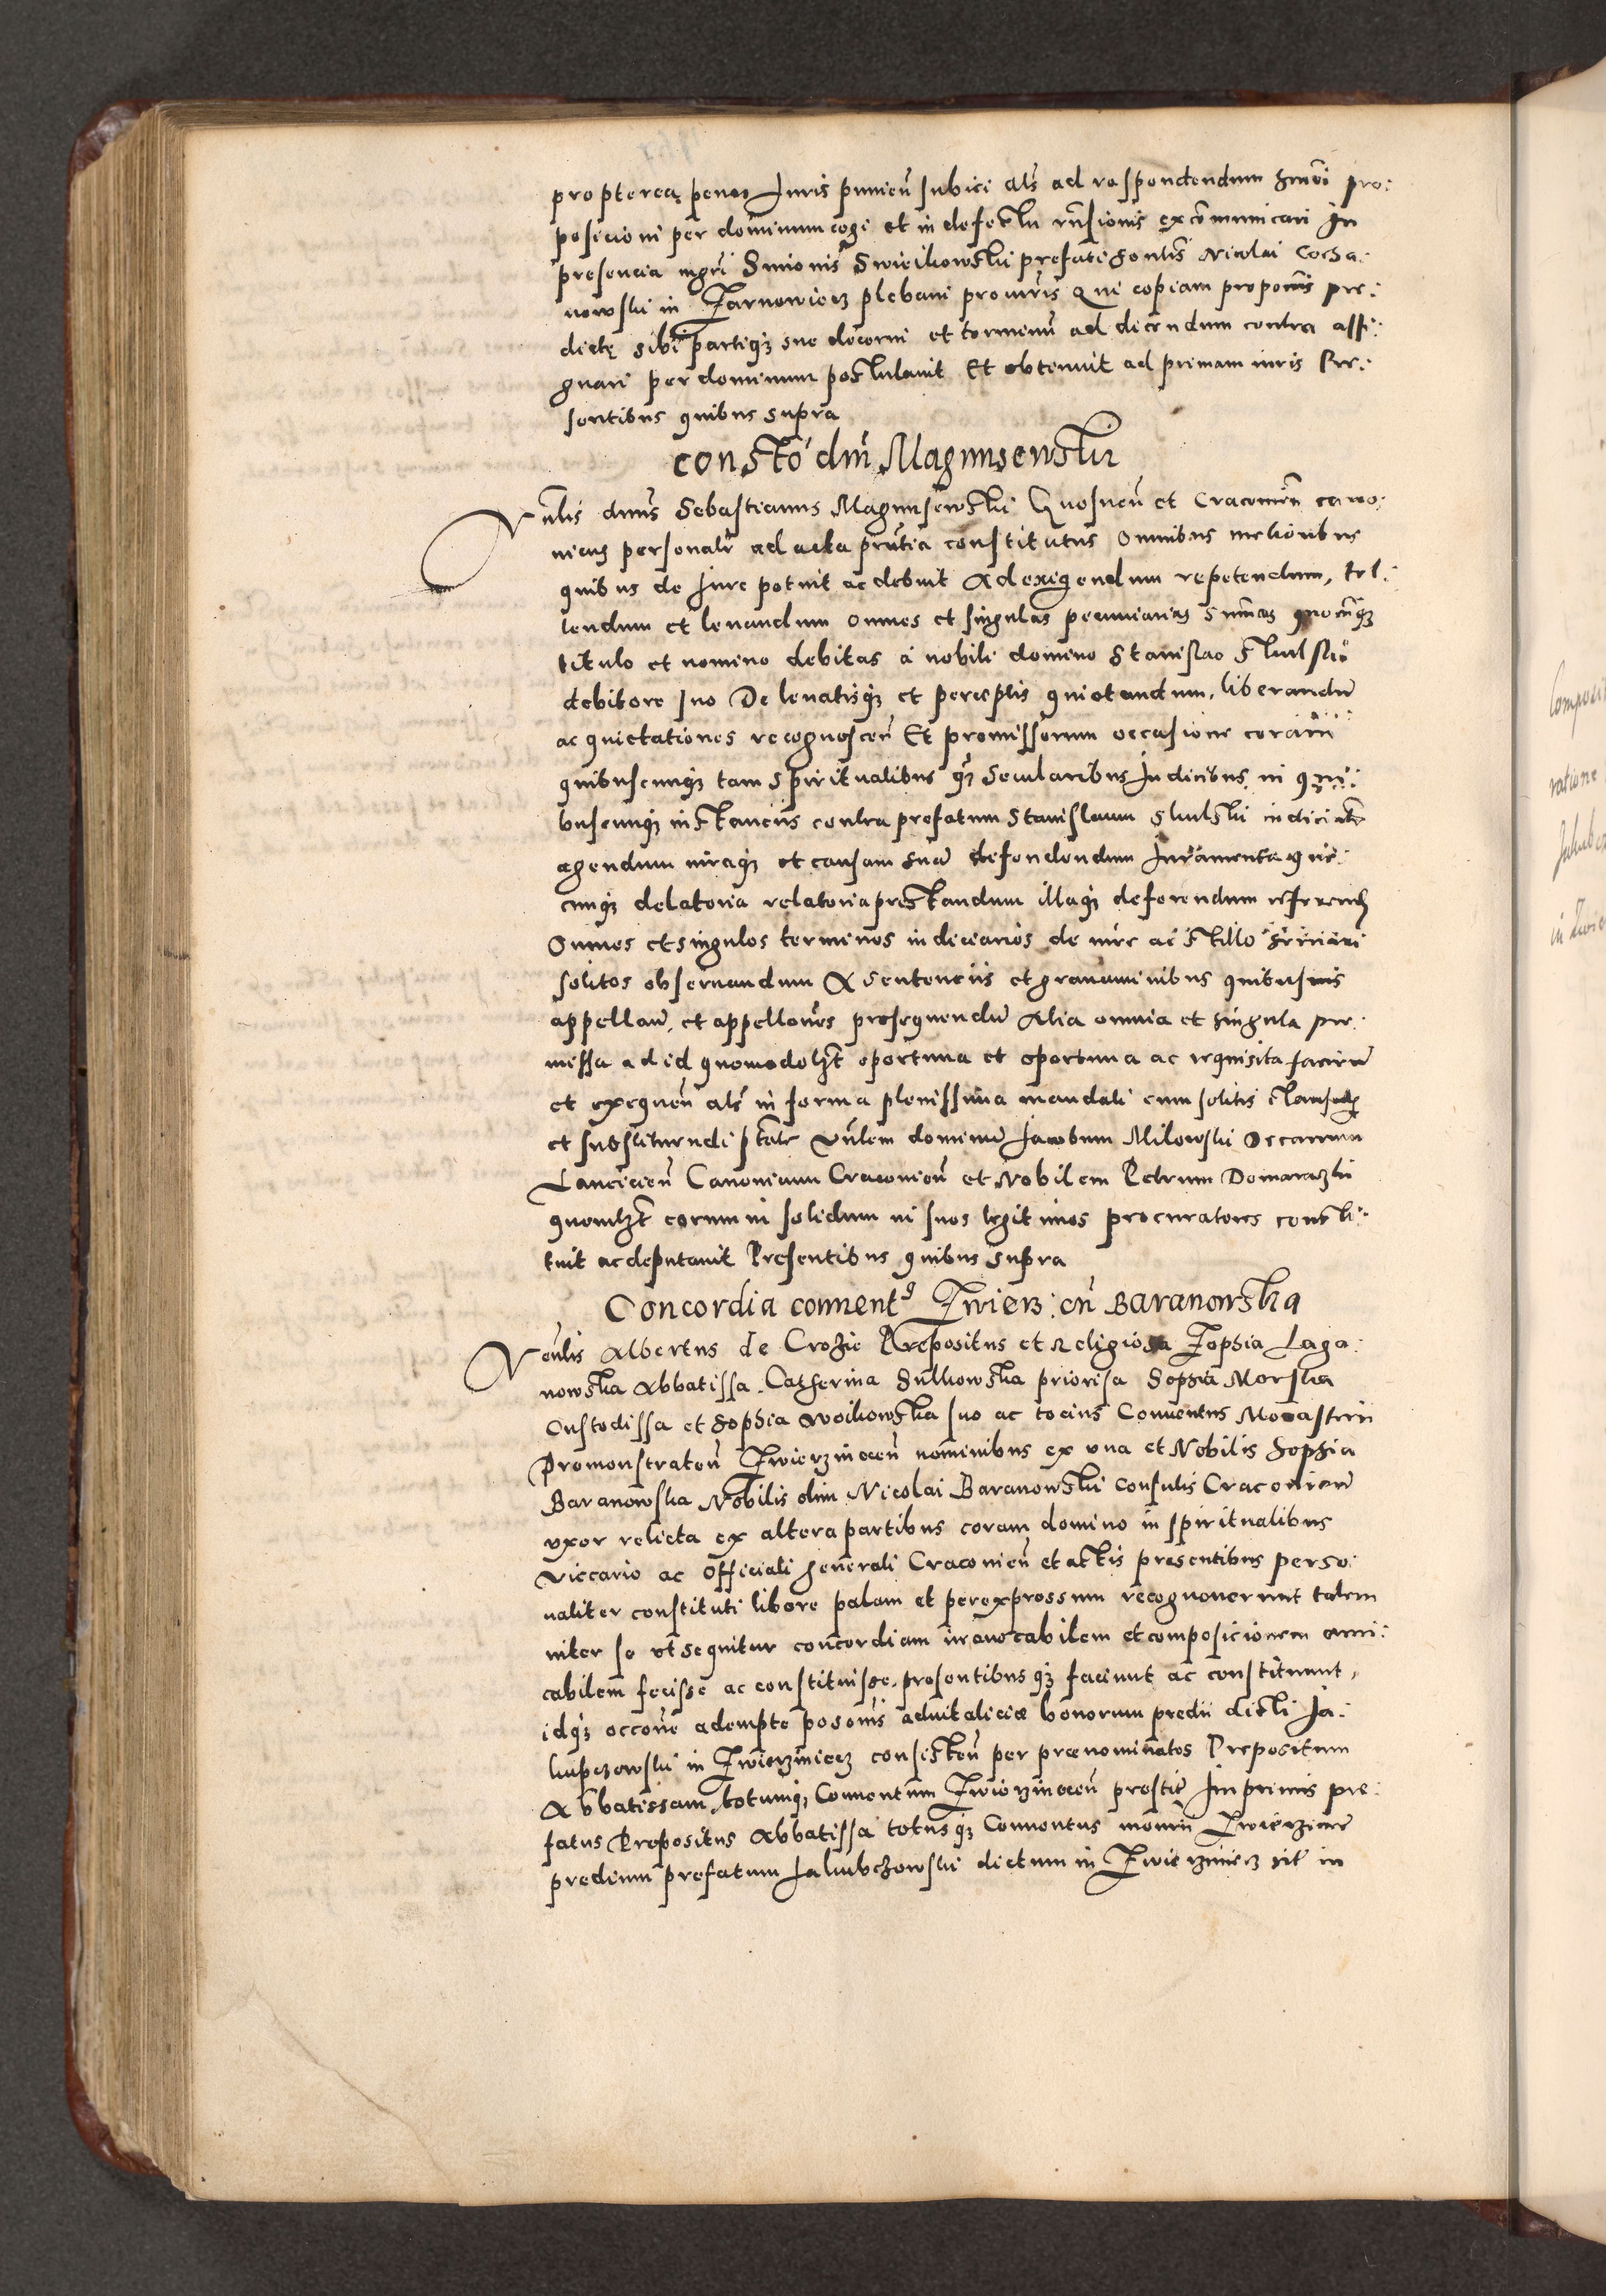 propterea penas Juris punieñ subici als ad respondendum hmoi pro:
posicioni per dominum cogi et in defectu rñsionis excommunicari In
presencia mgri Simonis Swieikowskii prefati gentis Nicolai Cocha:
nowski in Zarnowiecz plebani procuris Qui copiam proponis pre:
dicte sibi partiqȝ sue decerni et terminū ad dicendum contra assi:
gnari per dominum postulauit Et obtinuit ad primam iuris Pre:
sentibus quibus supra
Consto dni Magnusewskii
Vnlis dnus Sebastianus Magnusewskii Gnesneñ et Cracouieñ cano:
nicus personalr ad acta pñtia constitutus Omnibus melioribus
quibus de Jure potuit ac debuit Ad exigendum repetendum, tol:
lendum et leuandum omnes et singulas pecuniarias summas quocumqȝ
titulo et nomine debitas a nobili domino Stanislao
debitore suo De leuatisqȝ et perceptis quietandum, liberandū
ac quietationes recognosceñ Et premissorum occasione coram
quibuscumqȝ tam spiritualibus qȝ Secularibus Judicibus in qui:
buscumqȝ instanciis contra prefatum Stanislaum
agendum iuraqȝ et causam suā defendendum Juramenta que:
cumqȝ delatoria relatoria prestandum illaqȝ deferendum referendū
Omnes et singulos terminos indiciarios de iure ac stillo
solitos obseruandum A sentenciis et grauaminibus quibusuis
appellañ, et appellones prosequendū Alia omnia et singula pre:
missa ad id quomodolȝt oportuna et oportuna ac requisita faciend
et exequeñ als in forma plenissima mandati cum solitis clausulis
et substituendi ptate Vnlem dominū Jacobum Milowski Decanum
Lancicieñ Canonicum Cracouieñ et Nobilem Petrum Domaraczki
quemlȝt eorum in solidum in suos legitimos procuratores consti:
tuit ac deputauit Presentibus quibus supra
Concordia conuent9 Zwierz: cū Baranowska
Venlis Albertus de Prepositus et Religiosa Zophia Laga:
nowska Abbatissa. Catherina Sulkowska priorisa Sophia Morska
Custodissa et Sophia Woikowska suo ac tocius Conuentus Monasterii
Premonstrateñ Zwierzinieceñ nominibus ex vna et Nobilis Sophia
Baranowska Nobilis olim Nicolai Baranowskii Consulis Cracouieñ
vxor relicta ex altera partibus coram domino in spiritualibus
viccario ac Officiali generali Cracouieñ et actis presentibus perso:
naliter constituti libere palam et per expressum recognouerunt talem
inter se vt sequitur concordiam irreuocabilem et composicionem ami:
cabilem fecisse ac constituisse. presentibusqȝ faciunt ac constituunt,
idqȝ occone adempte posonis aduitalicie bonorum predii dicti Ja:
kubczowskii in Zwierziniecz consisteñ per prenominatos Prepositum
Abbatissam, totumqȝ Conuentum Zwierzinieceñ prestit Imprimis pre:
fatus Prepositus Abbatissa totusqȝ Conuentus monrii Zwierzinieceñ
predium prefatum Jakubczowski dictum in Zwierziniecz sit in